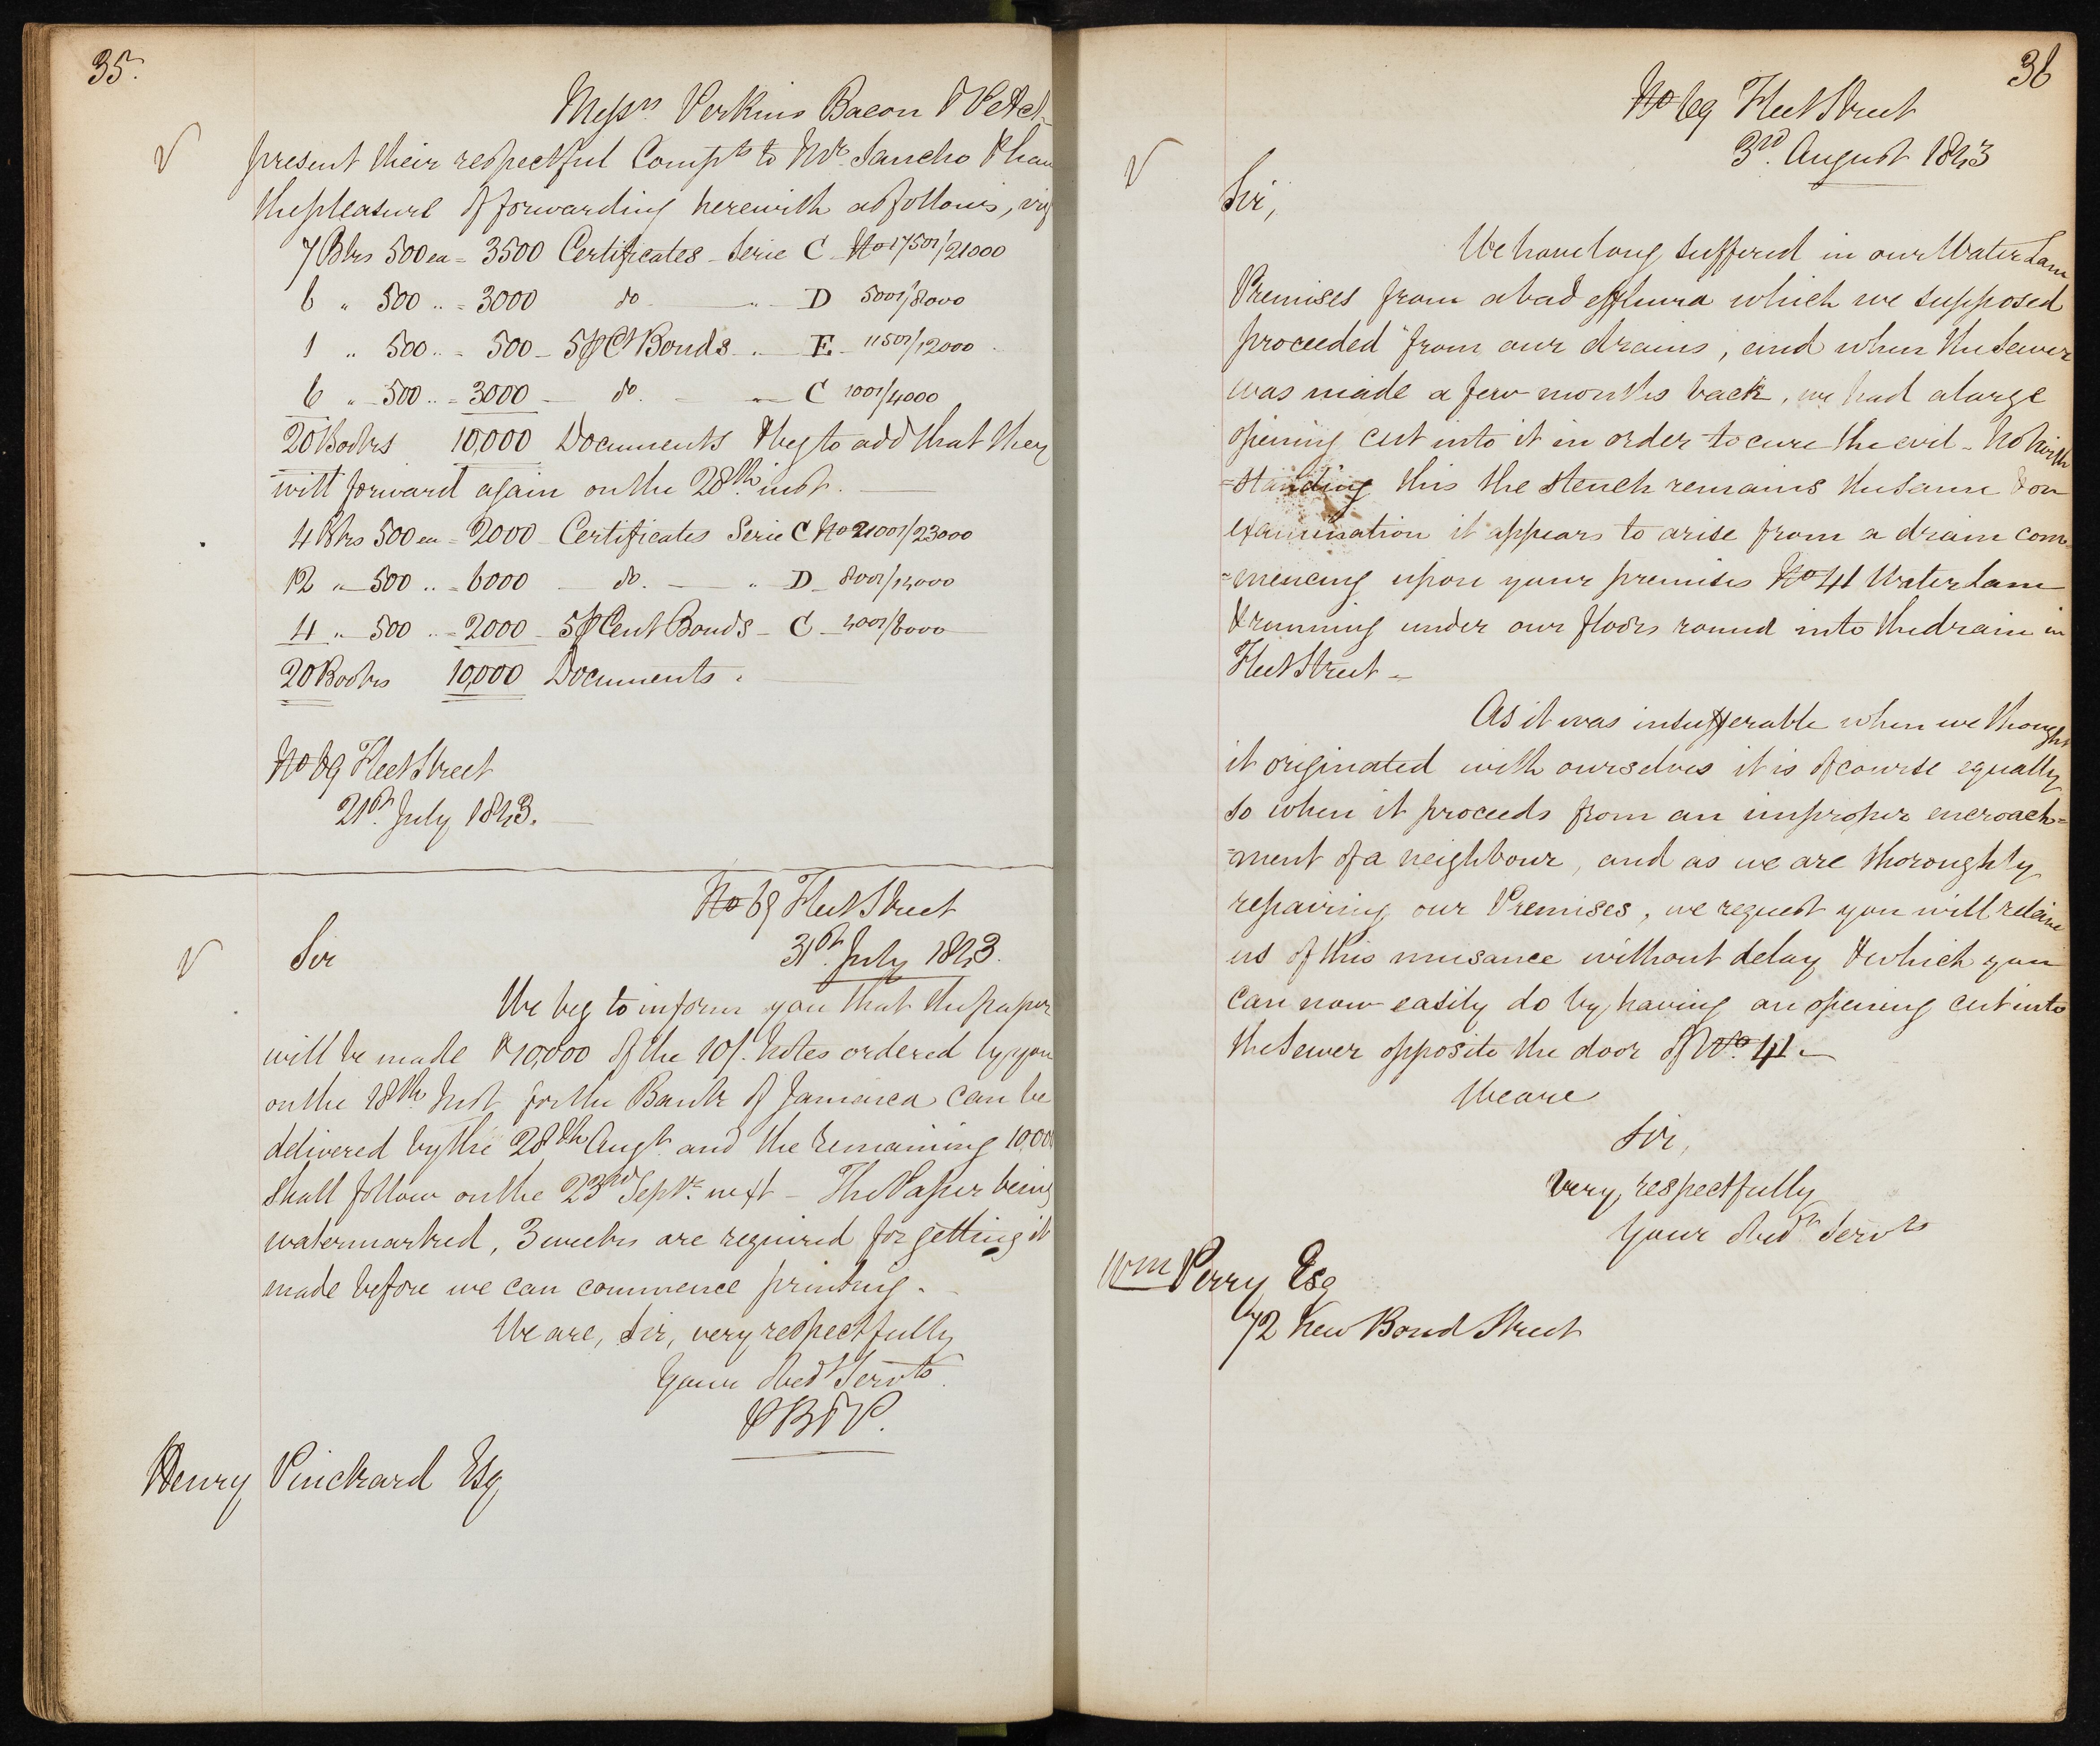 35.
Messrs Perkins Bacon & Petch
present their respectful Compts to Mr. Sancho & have
the pleasure of forwarding herewith as follows, viz
7 Bks 500 ea = 3500 Certificates - Serie C - No 17501/21000
6 " 500 .. = 3000 do - " - D 5001/8000
1 " 500 .. = 500 - 5 p Ct Bonds - " - E - 11501/12000
6 " 500 .. = 3000 - do. - " - C 1001/4000
20 Books 10,000 Documents & beg to add that they
will forward again on the 28th inst.
4 Bks 500 ea = 2000 - Certificates Serie C No 21001/23000
12 " 500 .. = 6000 - do. - " D - 8001/14000
4 " 500 .. = 2000 - 5 p Cent Bonds - C - 4001/6000
20 Books 10,000 Documents.
No 69 Fleet Street
21st July 1843.
No 69 Fleet Street
31st July 1843.
Sir
We beg to inform you that the paper
will be made & 10,000 of the 10/. Notes ordered by you
on the 18th Inst for the Bank of Jamaica can be
delivered by the 28th Augt and the remaining 10,000
shall follow on the 23rd Septr. next - The Paper being
watermarked, 3 weeks are required for getting it
made before we can commence printing. -
We are, Sir, very respectfully
Your Obedt Servts
PB&P.
Henry Pinckard Esq
36
No 69 Fleet Street
3rd. August 1843
Sir,
We have long suffered in our Water Lane
Premises from a bad effluvia which we supposed
proceeded from our drains, and when the Sewer
was made a few months back, we had a large
opening cut into it in order to cure the evil - Notwith
=standing this the stench remains the same & on
examination it appears to arise from a drain com=
=mencing upon your premises No 41 Water Lane
& running under our floors round into the drain in
Fleet Street -
As it was insufferable when we thought
it originated with ourselves it is of course equally
so when it proceeds from an improper encroach=
=ment of a neighbour, and as we are thoroughly
repairing our Premises, we request you will relieve
us of this nuisance without delay & which you
can now easily do by having an opening cut into
the Sewer opposite the door of No. 41 -
We are
Sir,
Very respectfully
Your Obedt Servts
Wm Perry Esq
72 New Bond Street